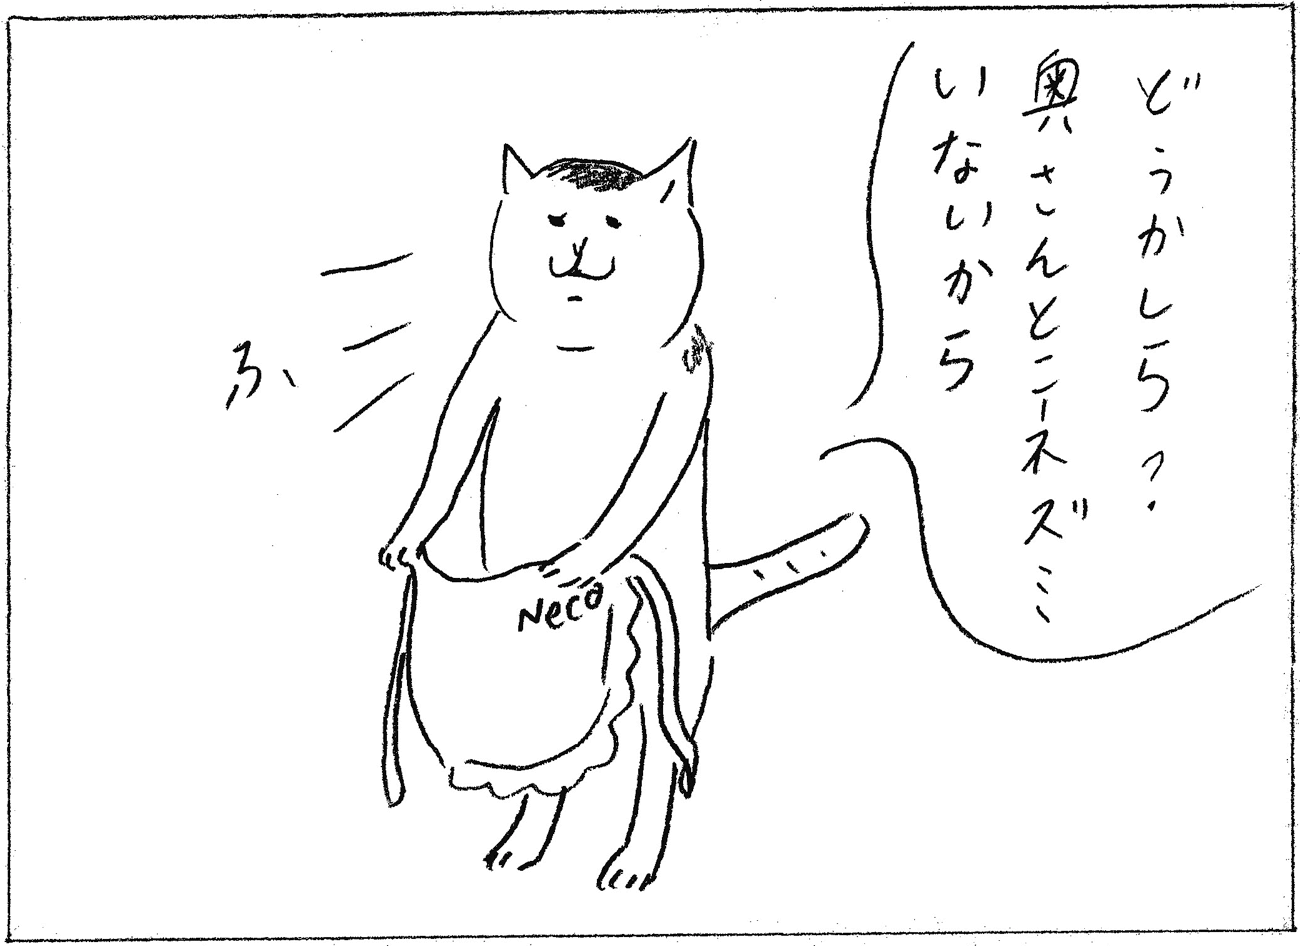 どうかしら?
奥さんとこーネズミ
いないから
ふ、
Neco